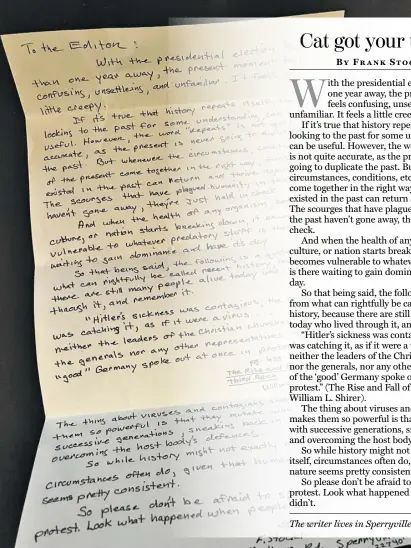 To the Editor:
With the presidential election
than one year away, the present moment
confusing, unsettling, and unfamiliar. It feels
little creepy.
If it's true that history repeats itself
looking to the past for some understanding can
useful. However, the word "repeats" is not
accurate, as the present is never going to
the past. But whenever the circumstances,
of the present come together in the right way
existed in the past can return and
The scourges that have plagued humanity
haven't gone away, they're just held in
And when the health of any organism,
culture, or nation starts breaking down, it
vulnerable to whatever predatory
waiting to gain dominance and have its day.
So that being said, the following is
what can rightfully be called recent history
there are still many people alive today who
through it, and remember it.
"Hitler's sickness was contagious, the
was catching it, as if it were a virus.
neither the leaders of the Christian churches
the generals nor any other representatives
"good" Germany spoke out at once in
The Rise and
Third Reich
The thing about viruses and contagions
them so powerful is that they mutate
successive generations, sneaking back
overcoming the host body's defences.
So while history might not exactly
circumstances often do, given that human
seems pretty consistent.
So please don't be afraid to
protest. Look what happened when people
Cat got your
By Frank Stoc
With the presidential e
one year away, the pr
feels confusing, unse
unfamiliar. It feels a little creep
If it's true that history repea
looking to the past for some u
can be useful. However, the wo
is not quite accurate, as the pr
going to duplicate the past. Bu
circumstances, conditions, etc
come together in the right way
existed in the past can return
The scourges that have plague
the past haven't gone away, the
check.
And when the health of any
culture, or nation starts break
becomes vulnerable to whatev
is there waiting to gain domin
day.
So that being said, the follo
from what can rightfully be ca
history, because there are still
today who lived through it, an
"Hitler's sickness was conta
was catching it, as if it were a v
neither the leaders of the Chri
nor the generals, nor any othe
of the 'good' Germany spoke o
protest." (The Rise and Fall of
William L. Shirer).
The thing about viruses and
makes them so powerful is tha
with successive generations, s
and overcoming the host body
So while history might not
itself, circumstances often do,
nature seems pretty consisten
So please don't be afraid to
protest. Look what happened
didn't.
The writer lives in Sperryville